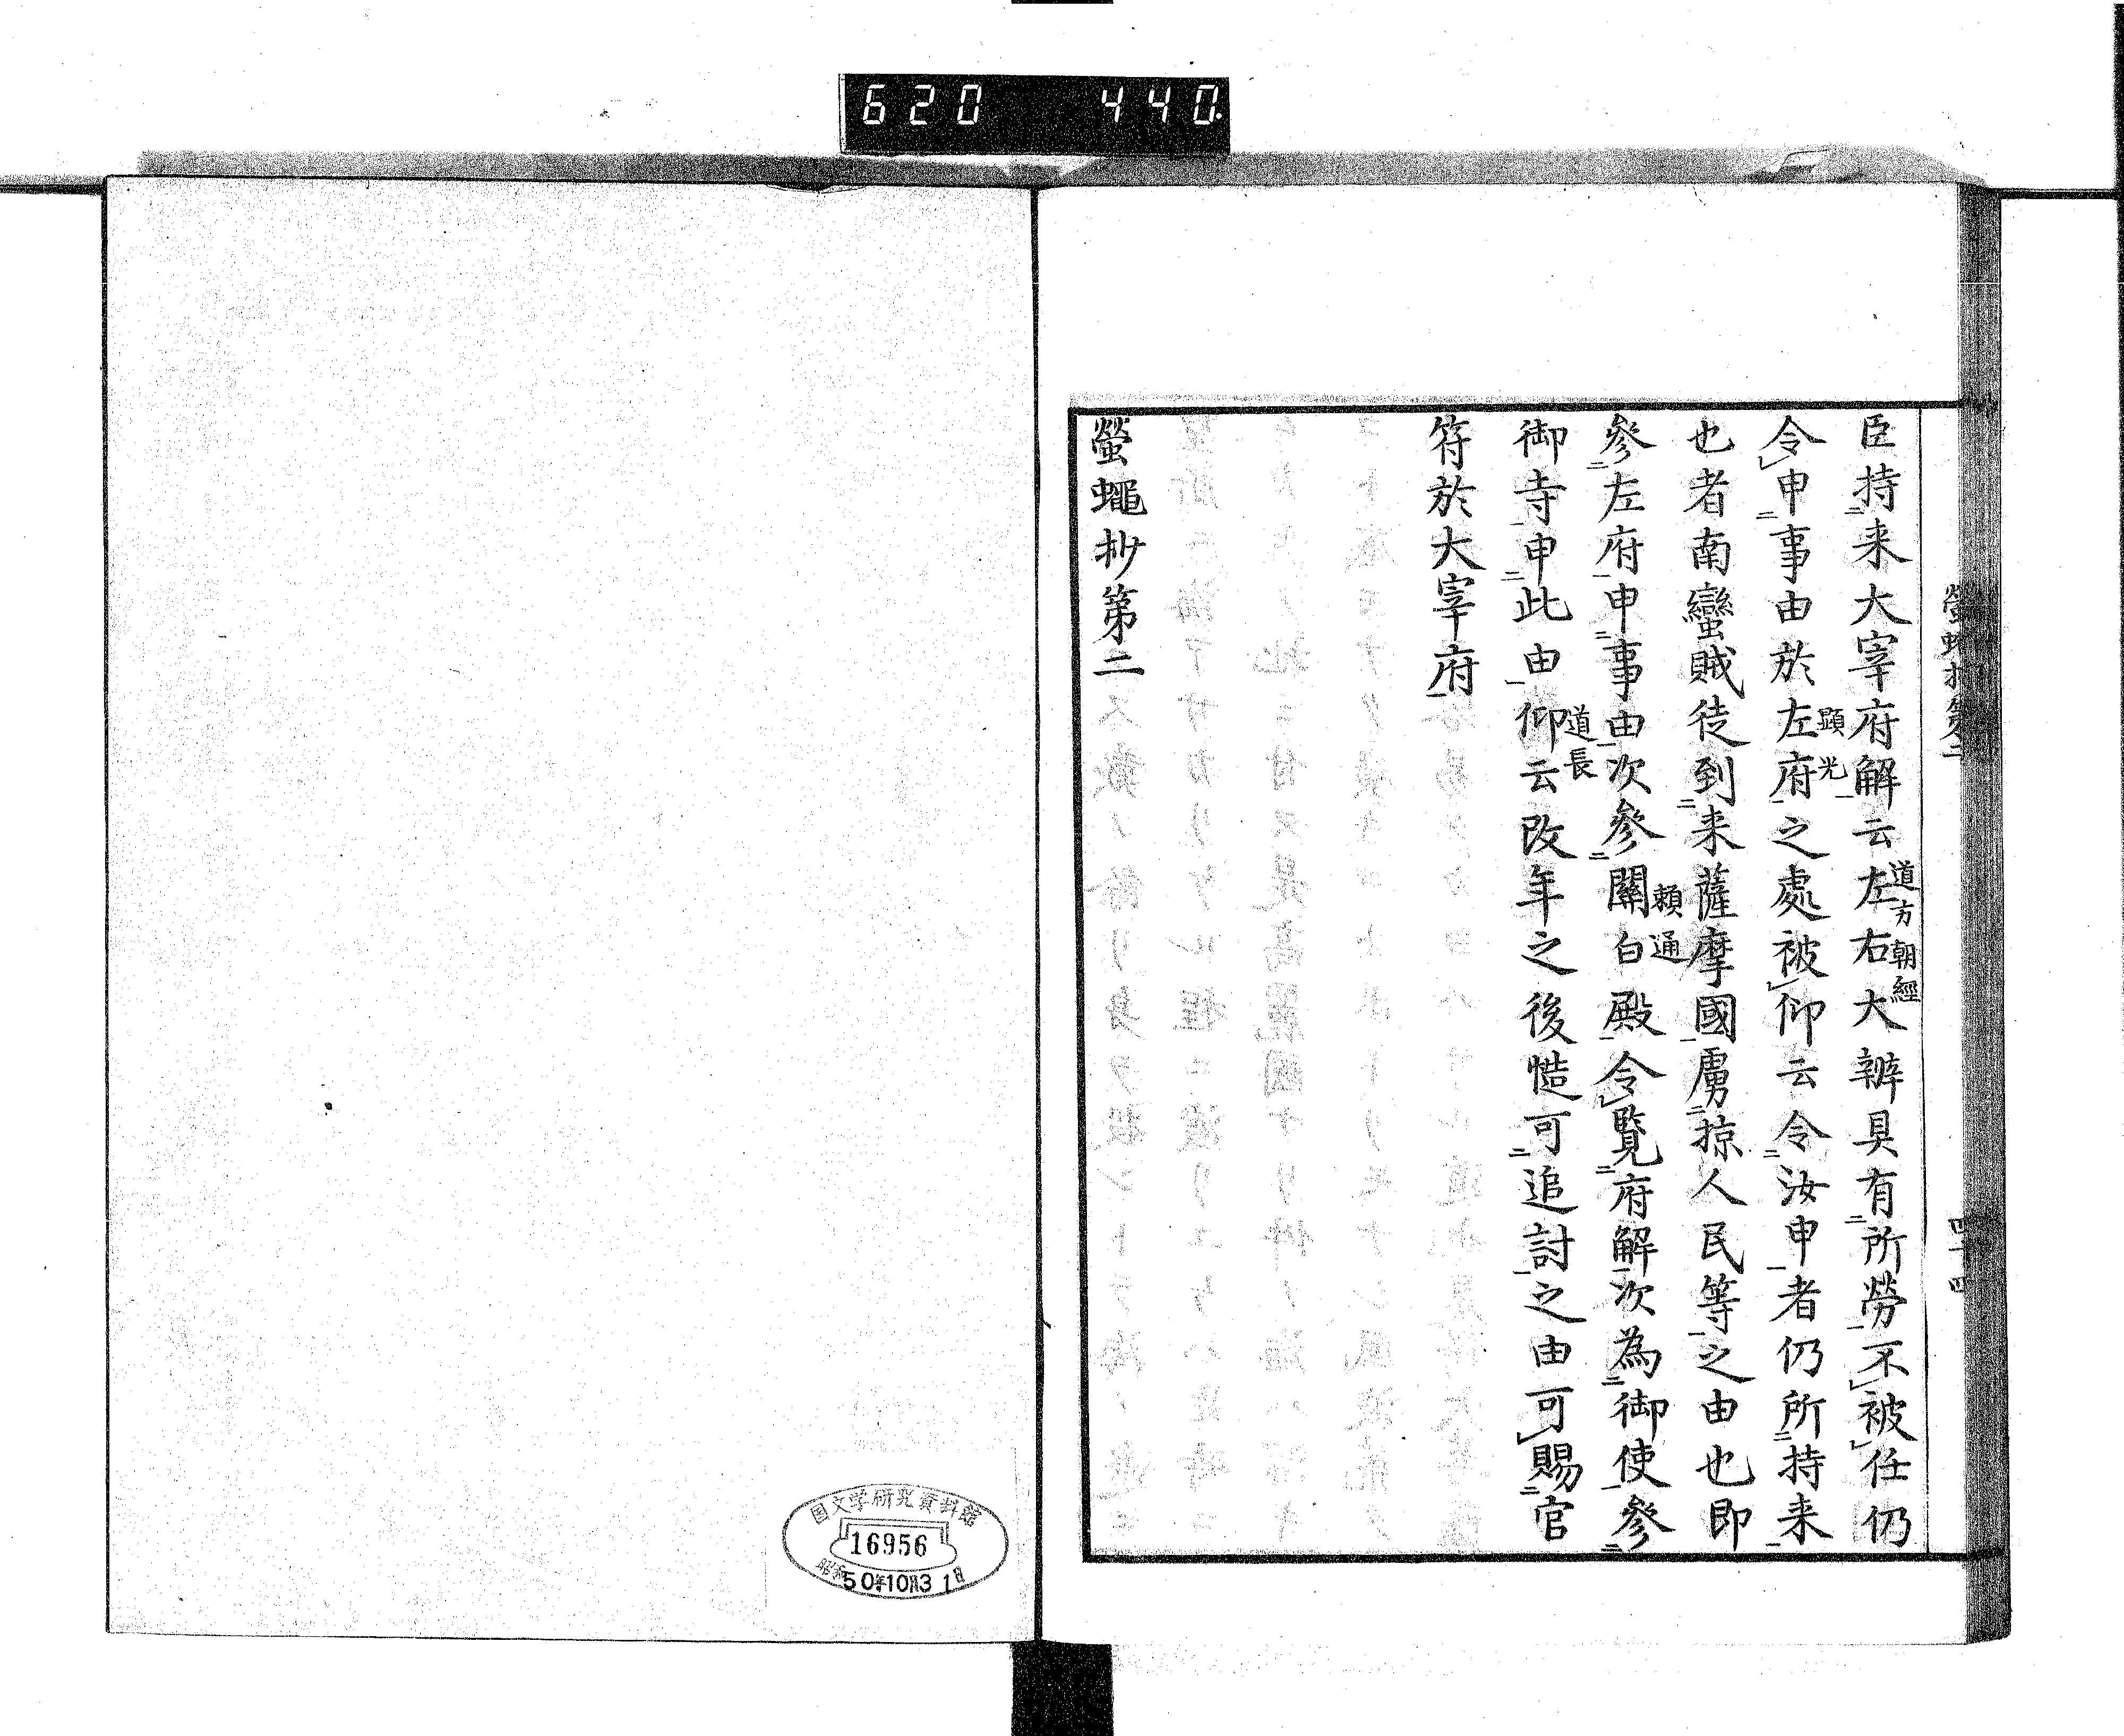 620 440
螢蠅抄第二
四十四
臣持来大宰府解云左右大辨具有所勞不被任仍
道方朝經
令申事由於左府之處被仰云令汝申者仍所持来
顕光
也者南蠻賊徒到来薩摩國虜掠人民等之由也即
參左府申事由次參關白殿令覽府解次為御使參
頼通
御寺申此由仰云改年之後慥可追討之由可賜官
道長
符於大宰府
螢蠅抄第二
国文学研究資料館
16956
昭和50年10月31日